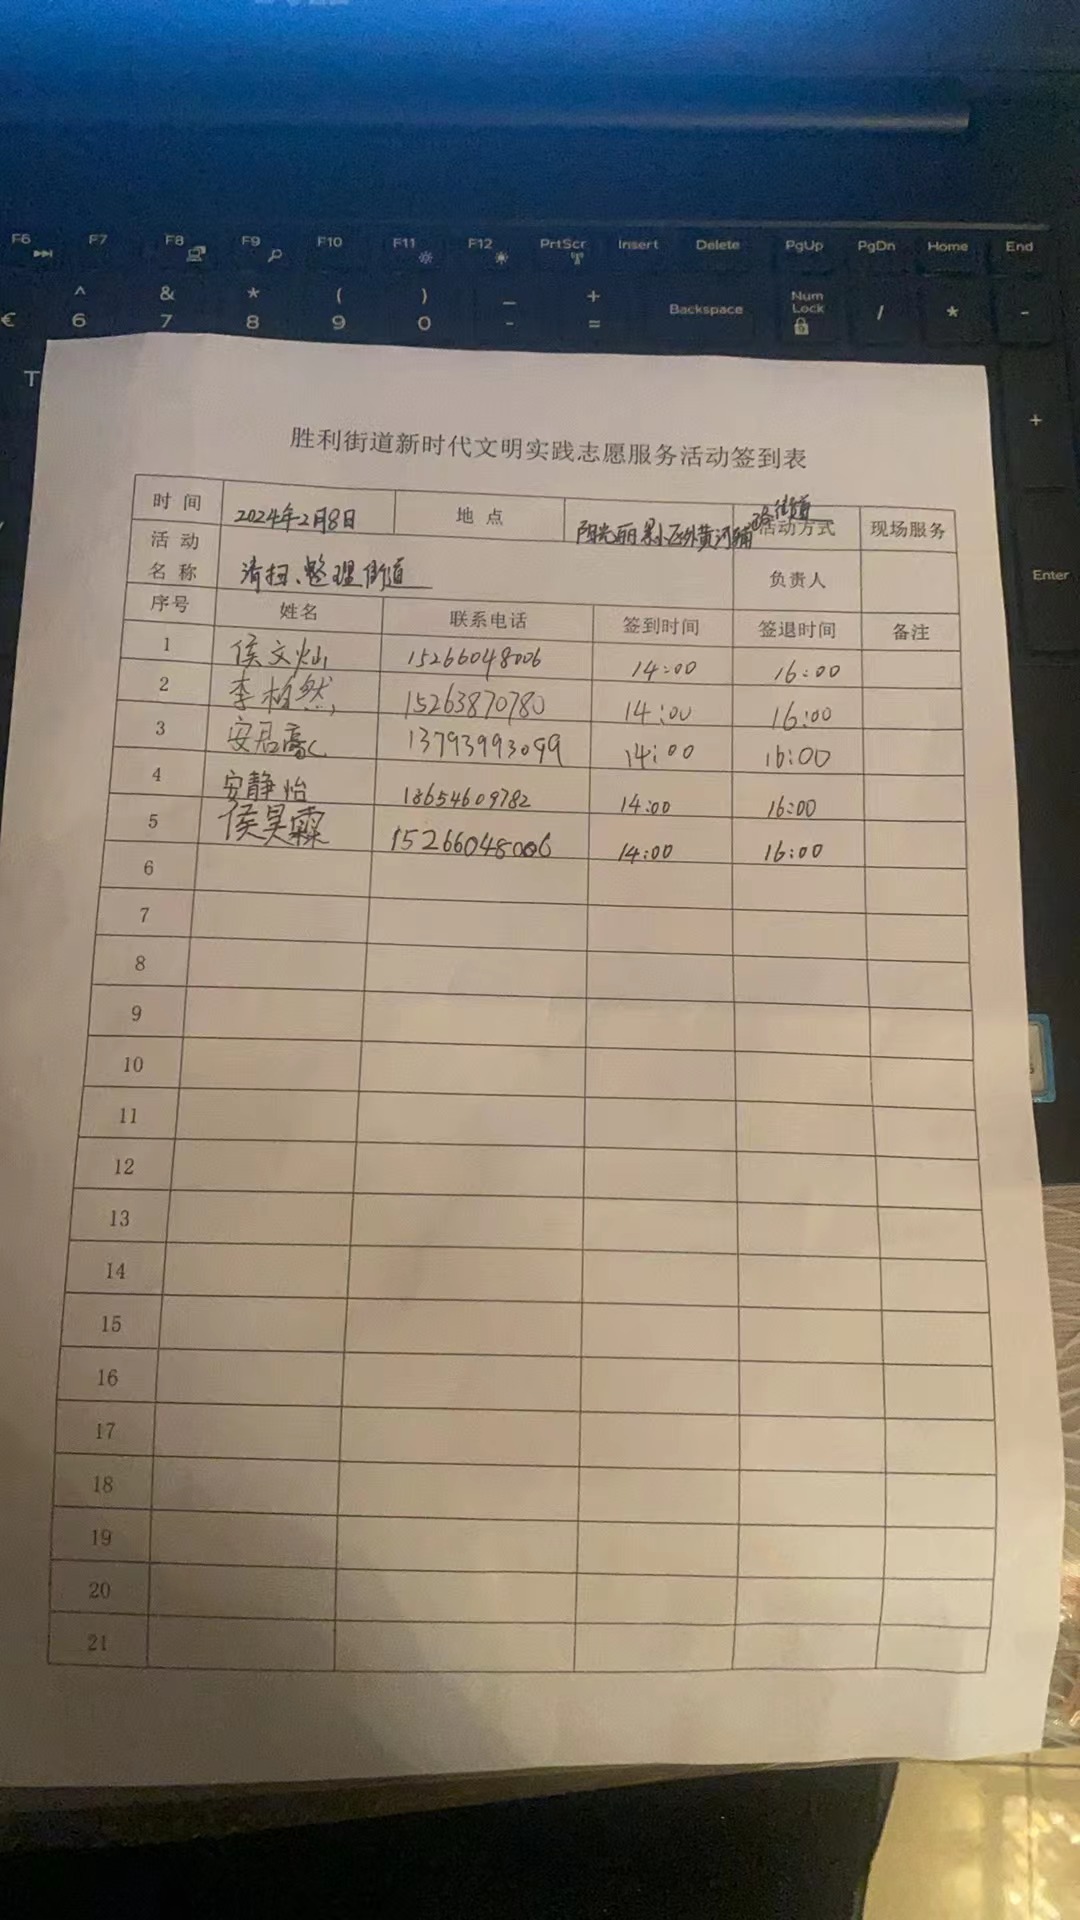 F6 F7 F8 F9 F10 F11 F12 PrtScr Insert Delete PgUp PgDn Home End
^ & * ( ) _ + Backspace Num Lock / * -
€ 6 7 8 9 0 - =
T
+
Enter
胜利街道新时代文明实践志愿服务活动签到表
时 间 2024年2月8日 地 点 阳光丽景小区外黄河辅路街道 活动方式 现场服务
活 动 名 称 清扫、整理街道 负责人
序号 姓名 联系电话 签到时间 签退时间 备注
1 侯文灿 15266048006 14:00 16:00
2 李柏然 15263870780 14:00 16:00
3 安居 13793993099 14:00 16:00
4 安静怡 18654609782 14:00 16:00
5 侯昊霖 15266048006 14:00 16:00
6
7
8
9
10
11
12
13
14
15
16
17
18
19
20
21